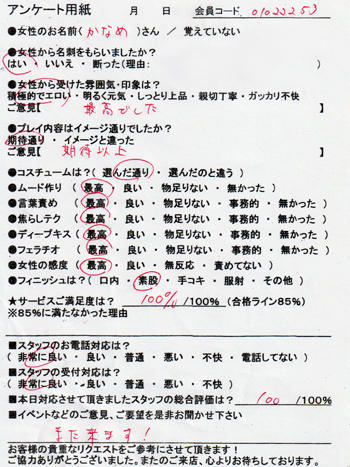 アンケート用紙　月　日　会員コード 01022253
●女性のお名前( かなめ )さん ／ 覚えていない
●女性から名刺をもらいましたか？
はい ・ いいえ ・ 断った(理由:　)
●女性から受けた雰囲気・印象は？
積極的でエロい・明るく元気・しっとり上品・親切丁寧・ガッカリ不快
ご意見【 最高でした 】
●プレイ内容はイメージ通りでしたか？
期待通り ・ イメージと違った
ご意見【 期待以上 】
●コスチュームは？( 選んだ通り ・ 選んだのと違う )
●ムード作り ( 最高 ・ 良い ・ 物足りない ・ 無かった )
●言葉責め ( 最高 ・ 良い ・ 物足りない ・ 事務的 ・ 無かった )
●焦らしテク ( 最高 ・ 良い ・ 物足りない ・ 事務的 ・ 無かった )
●ディープキス ( 最高 ・ 良い ・ 物足りない ・ 事務的 ・ 無かった )
●フェラチオ ( 最高 ・ 良い ・ 物足りない ・ 事務的 ・ 無かった )
●女性の感度 ( 最高 ・ 良い ・ 無反応 ・ 責めてない )
●フィニッシュは？ ( 口内 ・ 素股 ・ 手コキ ・ 服射 ・ その他 )
★サービスご満足度は？ 100% /100% (合格ライン85%)
※85%に満たなかった理由
■スタッフのお電話対応は？
( 非常に良い ・ 良い ・ 普通 ・ 悪い ・ 不快 ・ 電話してない )
■スタッフの受付対応は？
( 非常に良い ・ 良い ・ 普通 ・ 悪い ・ 不快 )
■本日対応させて頂きましたスタッフの総合評価は？ 100 /100%
■イベントなどのご意見、ご要望を是非お聞かせ下さい
また来ます！
お客様の貴重なリクエストをご参考にさせて頂きます！
ご協力ありがとうございました。またのご来店、心よりお待ちしております。